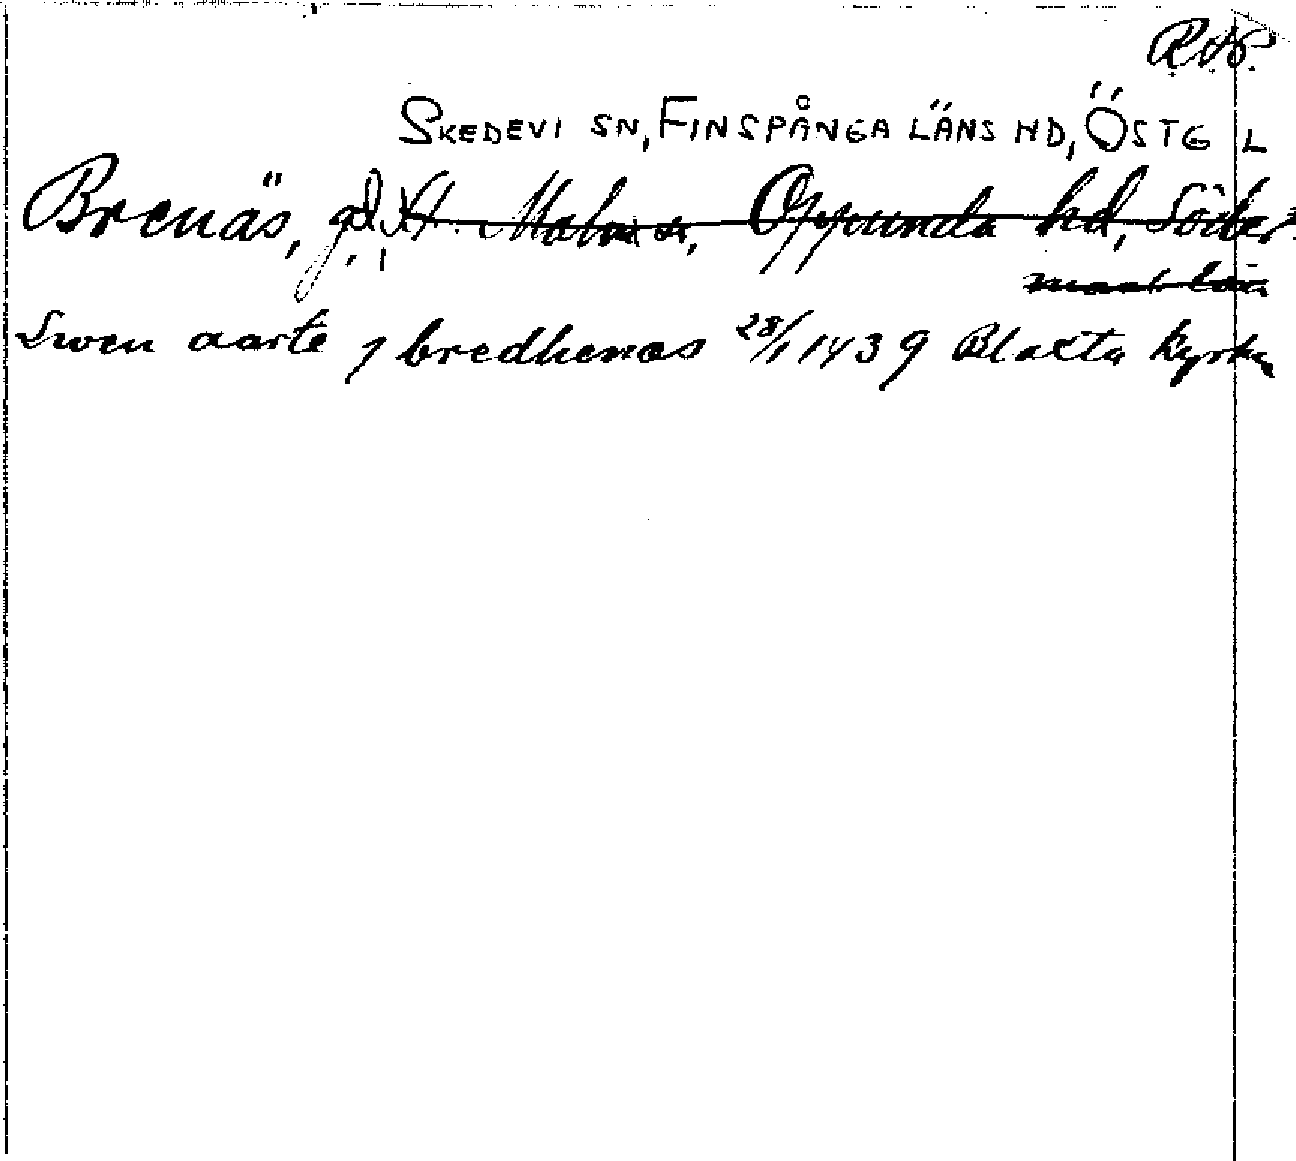 R.A.P.
SKEDEVI SN, FINSPÅNGA LÄNS HD, ÖSTG L
Brenäs, gd, St. Malms sn, Oppunda hd, Söder
manl. län
Swen aarte j bredhenæs 28/1 1439 Blaxta kyrka